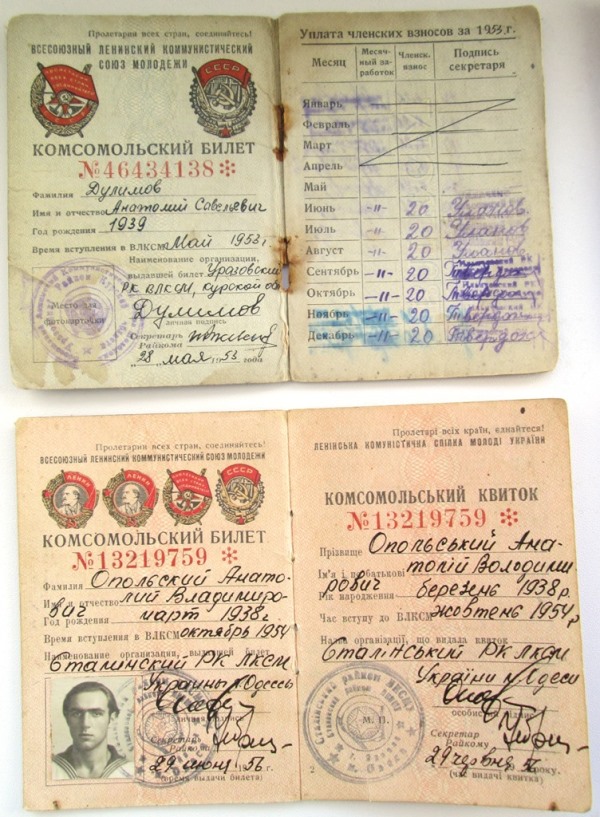 Пролетарии всех стран, соединяйтесь!
ВСЕСОЮЗНЫЙ ЛЕНИНСКИЙ КОММУНИСТИЧЕСКИЙ
СОЮЗ МОЛОДЕЖИ
СССР
КОМСОМОЛЬСКИЙ БИЛЕТ
№46434138
Фамилия Дулимов
Имя и отчество Анатолий Савельевич
Год рождения 1939
Время вступления в ВЛКСМ Май 1953 г
Наименование организации,
выдавшей билет Уразовский
РК ВЛКСМ, Курской об
Место для
фотокарточки
Дулимов
личная подпись
Секретарь
Райкома
28 мая 1953 года
Уплата членских взносов за 1953 г.
Месяц Месяч-ный за-работок Членск. взнос Подпись секретаря
Январь
Февраль
Март
Апрель
Май
Июнь -"- 20 Уланов
Июль -"- 20 Уланов
Август -"- 20 Уланов
Сентябрь -"- 20
Октябрь -"- 20
Ноябрь -"- 20
Декабрь -"- 20
Пролетарии всех стран, соединяйтесь!
ВСЕСОЮЗНЫЙ ЛЕНИНСКИЙ КОММУНИСТИЧЕСКИЙ СОЮЗ МОЛОДЕЖИ
ЛЕНИН
ЛЕНИН
СССР
КОМСОМОЛЬСКИЙ БИЛЕТ
№13219759
Фамилия Опольский Анато-
Имя и отчество лий Владимиро-
вич
Год рождения март 1938 г.
Время вступления в ВЛКСМ октябрь 1954
Наименование организации, выдавшей билет
Сталинский РК ЛКСМ
Украины г. Одессы
личная подпись
Секретарь
Райкома
29 июня 1956 г.
(время выдачи билета)
Пролетарі всіх країн, єднайтеся!
ЛЕНІНСЬКА КОМУНІСТИЧНА СПІЛКА МОЛОДІ УКРАЇНИ
КОМСОМОЛЬСЬКИЙ КВИТОК
№13219759
Прізвище Опольський Ана-
Ім'я і по батькові толій Володими
рович
Рік народження березень 1938 р.
Час вступу до ВЛКСМ жовтень 1954 р
Назва організації, що видала квиток
Сталінський РК ЛКСМ
України м. Одеси
особистий підпис
М. П.
Секретар
Райкому
29 червня 56 року.
(час видачі квитка)
2